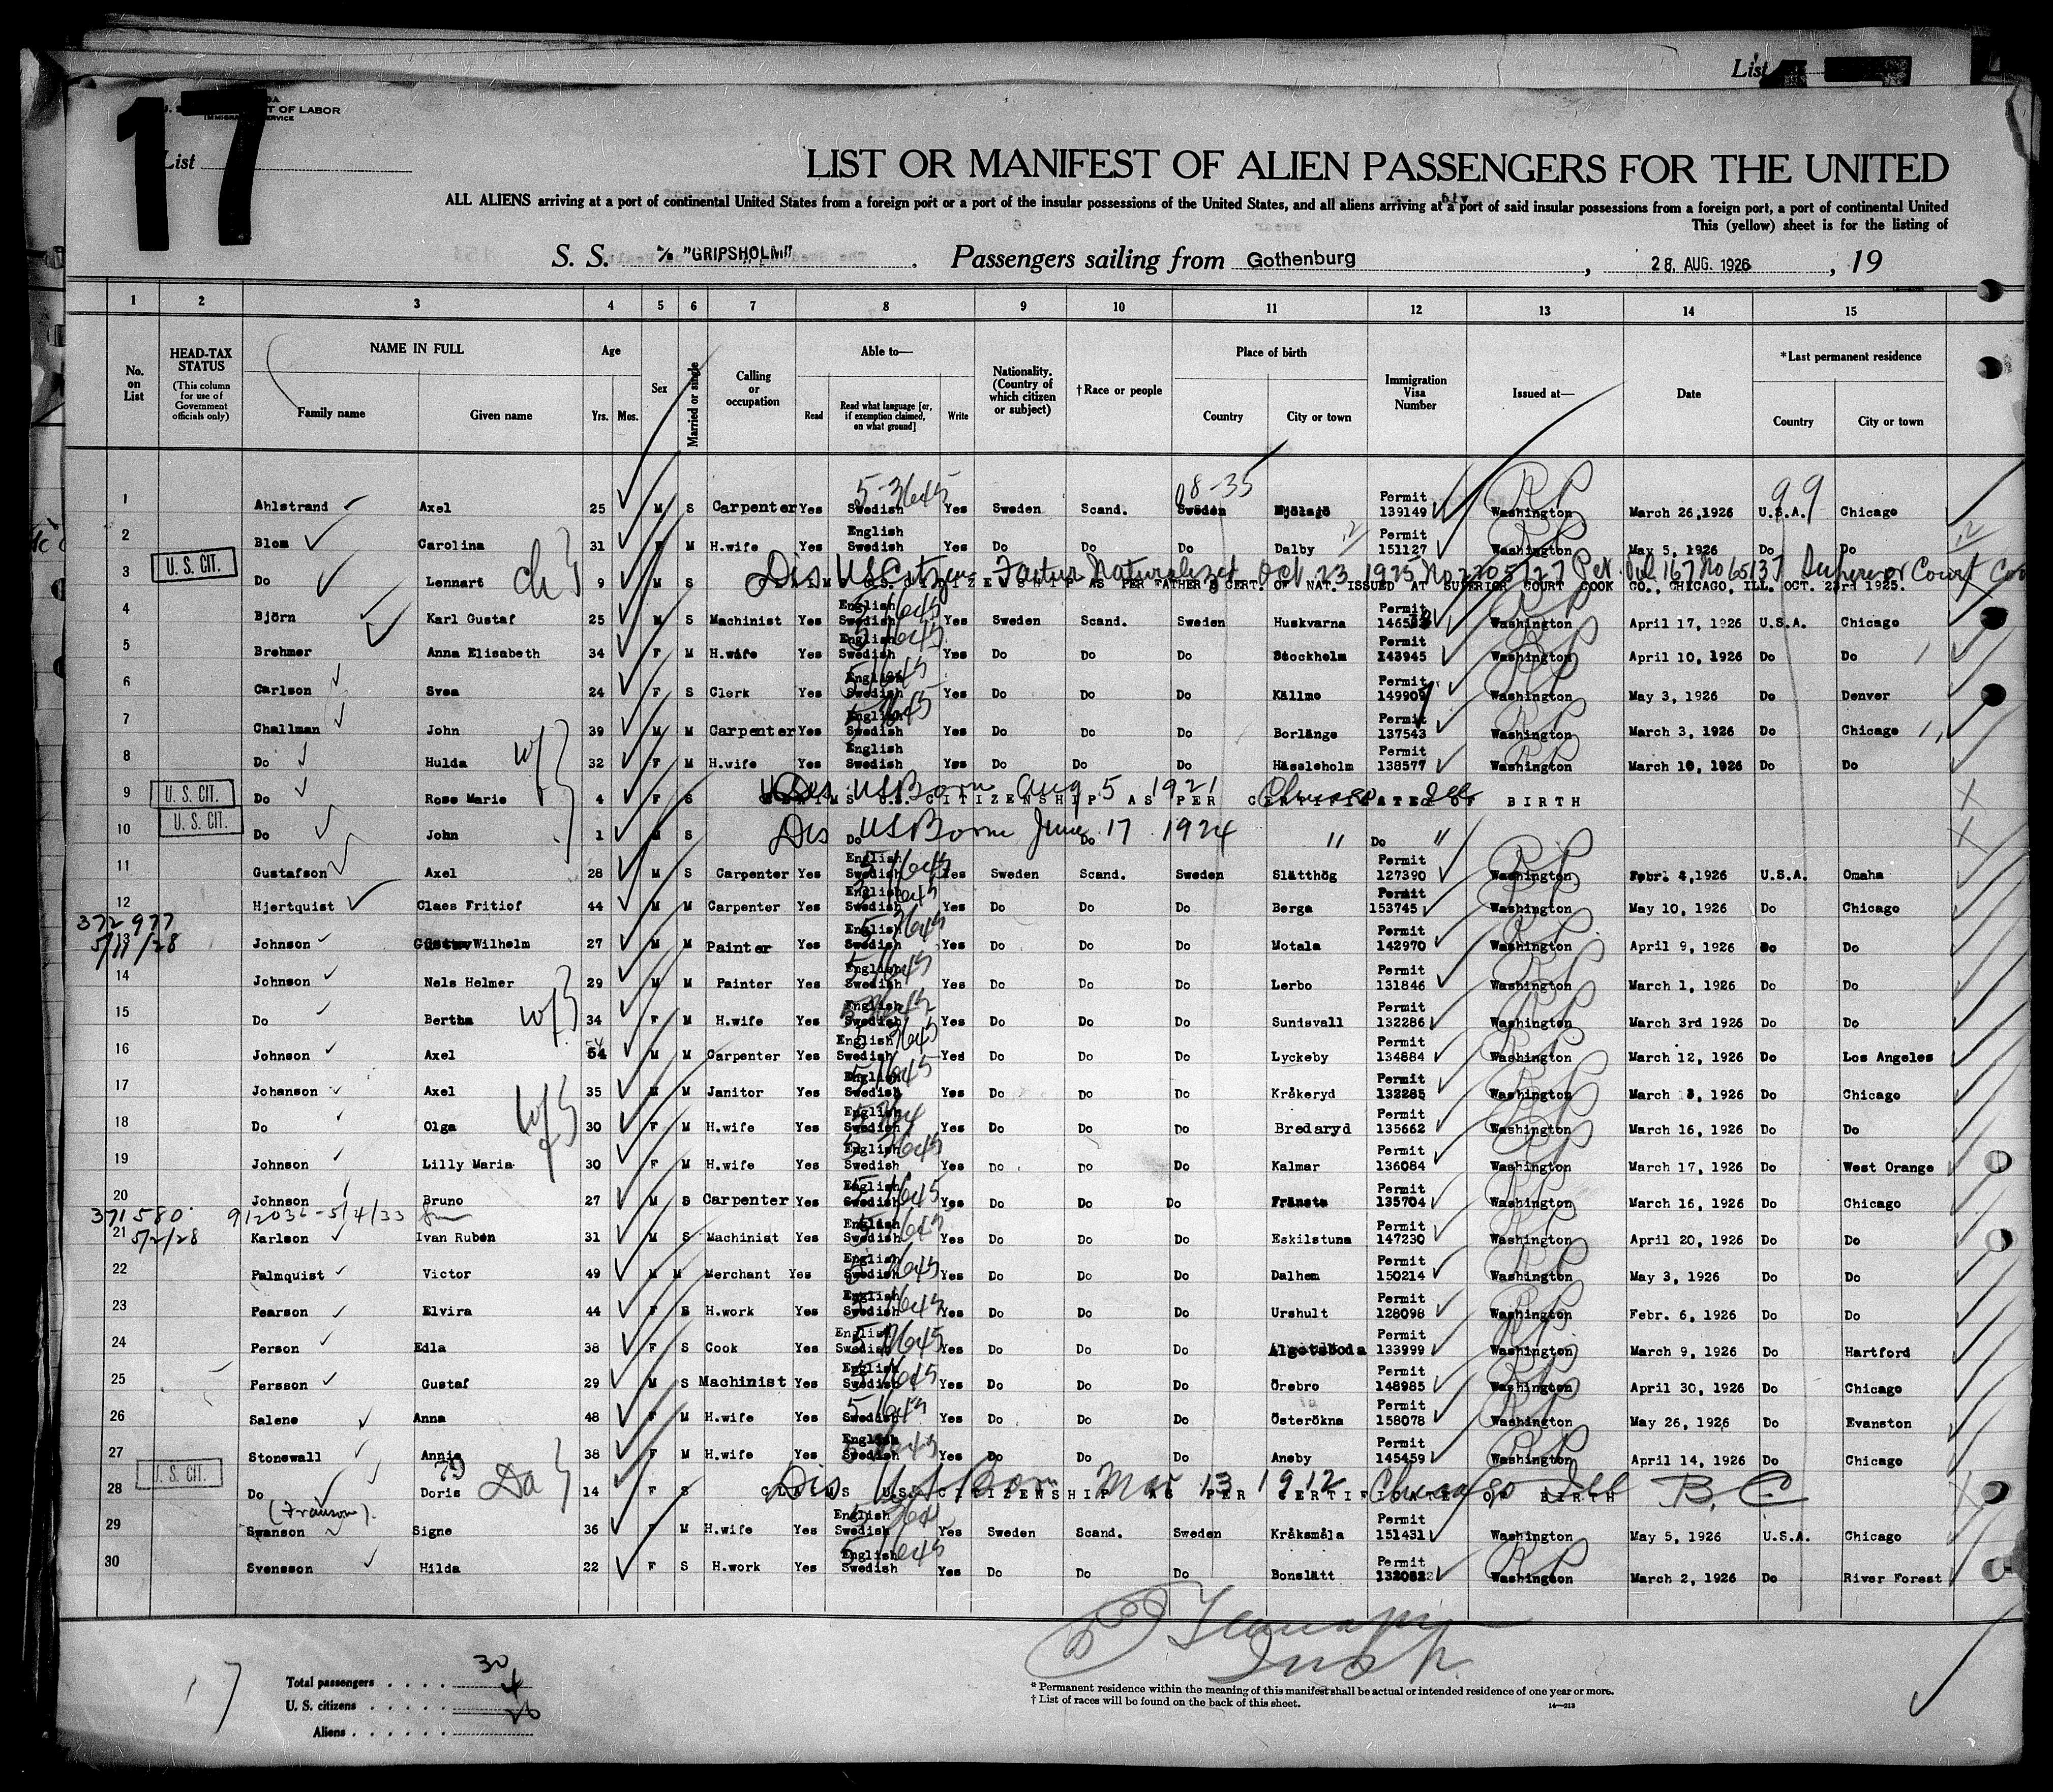 List
17
T OF LABOR
List
LIST OR MANIFEST OF ALIEN PASSENGERS FOR THE UNITED
ALL ALIENS arriving at a port of continental United States from a foreign port or a port of the insular possessions of the United States, and all aliens arriving at a port of said insular possessions from a foreign port, a port of continental United
This (yellow) sheet is for the listing of
S. S. M/S "GRIPSHOLM" . Passengers sailing from Gothenburg , 28. AUG. 1926 , 19
1 2 3 4 5 6 7 8 9 10 11 12 13 14 15
No. on List HEAD-TAX STATUS (This column for use of Government officials only) NAME IN FULL Family name Given name Age Yrs. Mos. Sex Married or single Calling or occupation Able to— Read Read what language [or, if exemption claimed, on what ground] Write Nationality. (Country of which citizen or subject) †Race or people Place of birth Country City or town Immigration Visa Number Issued at— Date *Last permanent residence Country City or town
5-3645 08-35 99
1 Ahlstrand Axel 25 M S Carpenter Yes Swedish Yes Sweden Scand. Sweden Permit 139149 Washington March 26,1926 U.S.A. Chicago
2 Blom Carolina 31 M H.wife Yes English Swedish Yes Do Do Do Dalby Permit 151127 Washington May 5, 1926 Do Do
U. S. CIT.
3 Do Lennart ch 9 M S Dis US Citizen Father Naturalized Oct 23 1925 No 2205727 Pet. Vol 167 No 65137 Superior Court
CLAIMS U.S. CITIZENSHIP AS PER FATHER'S CERT. OF NAT. ISSUED AT SUPERIOR COURT COOK CO., CHICAGO, ILL. OCT. 23rd 1925.
4 Björn Karl Gustaf 25 M S Machinist Yes English Swedish Yes Sweden Scand. Sweden Huskvarna Permit Washington April 17, 1926 U.S.A. Chicago
5 Brehmer Anna Elisabeth 34 F M H.wife Yes English Swedish Yes Do Do Do Stockholm Permit 143945 Washington April 10, 1926 Do Do
6 Carlson Svea 24 F S Clerk Yes English Swedish Yes Do Do Do Källmo Permit 149909 Washington May 3, 1926 Do Denver
7 Challman John 39 M M Carpenter Yes English Swedish Yes Do Do Do Borlänge Permit 137543 Washington March 3, 1926 Do Chicago
8 Do Hulda wf 32 F M H.wife Yes English Swedish Yes Do Do Do Hässleholm Permit 138577 Washington March 10, 1926 Do Do
U. S. CIT.
9 Do Rose Marie 4 F S Dis US Born Aug 5 1921 Chicago Ill
CLAIMS U.S. CITIZENSHIP AS PER CERTIFICATE OF BIRTH
U. S. CIT.
10 Do John 1 M S Dis US Born June 17 1924 " "
Do Do Do
11 Gustafson Axel 28 M S Carpenter Yes English Swedish Yes Sweden Scand. Sweden Slätthög Permit 127390 Washington Febr. 4,1926 U.S.A. Omaha
12 Hjertquist Claes Fritiof 44 M M Carpenter Yes English Swedish Yes Do Do Do Berga Permit 153745 Washington May 10, 1926 Do Chicago
372977
13 Johnson Wilhelm 27 M M Painter Yes English Swedish Yes Do Do Do Motala Permit 142970 Washington April 9, 1926 Do Do
14 Johnson Nels Helmer 29 M M Painter Yes English Swedish Yes Do Do Do Lerbo Permit 131846 Washington March 1, 1926 Do Do
15 Do Bertha wf 34 F M H.wife Yes English Swedish Yes Do Do Do Sundsvall Permit 132286 Washington March 3rd 1926 Do Do
16 Johnson Axel 54 M M Carpenter Yes English Swedish Yes Do Do Do Lyckeby Permit 134884 Washington March 12, 1926 Do Los Angeles
17 Johanson Axel 35 M M Janitor Yes English Swedish Yes Do Do Do Kråkeryd Permit 132285 Washington March 3, 1926 Do Chicago
18 Do Olga wf 30 F M H.wife Yes English Swedish Yes Do Do Do Bredaryd Permit 135662 Washington March 16, 1926 Do Do
19 Johnson Lilly Maria 30 F M H.wife Yes English Swedish Yes Do Do Do Kalmar Permit 136084 Washington March 17, 1926 Do West Orange
20 Johnson Bruno 27 M S Carpenter Yes English Swedish Yes Do Do Do Fränsta Permit 135704 Washington March 16, 1926 Do Chicago
371580 912036 - 5/4/33
5/2/28
21 Karlson Ivan Ruben 31 M S Machinist Yes English Swedish Yes Do Do Do Eskilstuna Permit 147230 Washington April 20, 1926 Do Do
22 Palmquist Victor 49 M M Merchant Yes English Swedish Yes Do Do Do Dalhem Permit 150214 Washington May 3, 1926 Do Do
23 Pearson Elvira 44 F S H.work Yes English Swedish Yes Do Do Do Urshult Permit 128098 Washington Febr. 6, 1926 Do Do
24 Person Edla 38 F S Cook Yes English Swedish Yes Do Do Do Permit 133999 Washington March 9, 1926 Do Hartford
25 Persson Gustaf 29 M S Machinist Yes English Swedish Yes Do Do Do Örebro Permit 148985 Washington April 30, 1926 Do Chicago
26 Salene Anna 48 F M H.wife Yes Swedish Yes Do Do Do Österökna Permit 158078 Washington May 26, 1926 Do Evanston
27 Stonewall Annie 38 F M H.wife Yes English Swedish Yes Do Do Do Aneby Permit 145459 Washington April 14, 1926 Do Chicago
U. S. CIT.
28 Do Doris Da 14 F S Dis US Born Mar 13 1912 Chicago Ill B. C
CLAIMS U.S. CITIZENSHIP AS PER CERTIFICATE OF BIRTH
29 Swanson Signe 36 F M H.wife Yes English Swedish Yes Sweden Scand. Sweden Kråksmåla Permit 151431 Washington May 5, 1926 U.S.A. Chicago
30 Svensson Hilda 22 F S H.work Yes English Swedish Yes Do Do Do Bonslätt Permit Washington March 2, 1926 Do River Forest
Insp.
17
Total passengers . . . . 30
U. S. citizens . . . . . 4
Aliens . . . . . . 26
* Permanent residence within the meaning of this manifest shall be actual or intended residence of one year or more.
† List of races will be found on the back of this sheet.
14—213